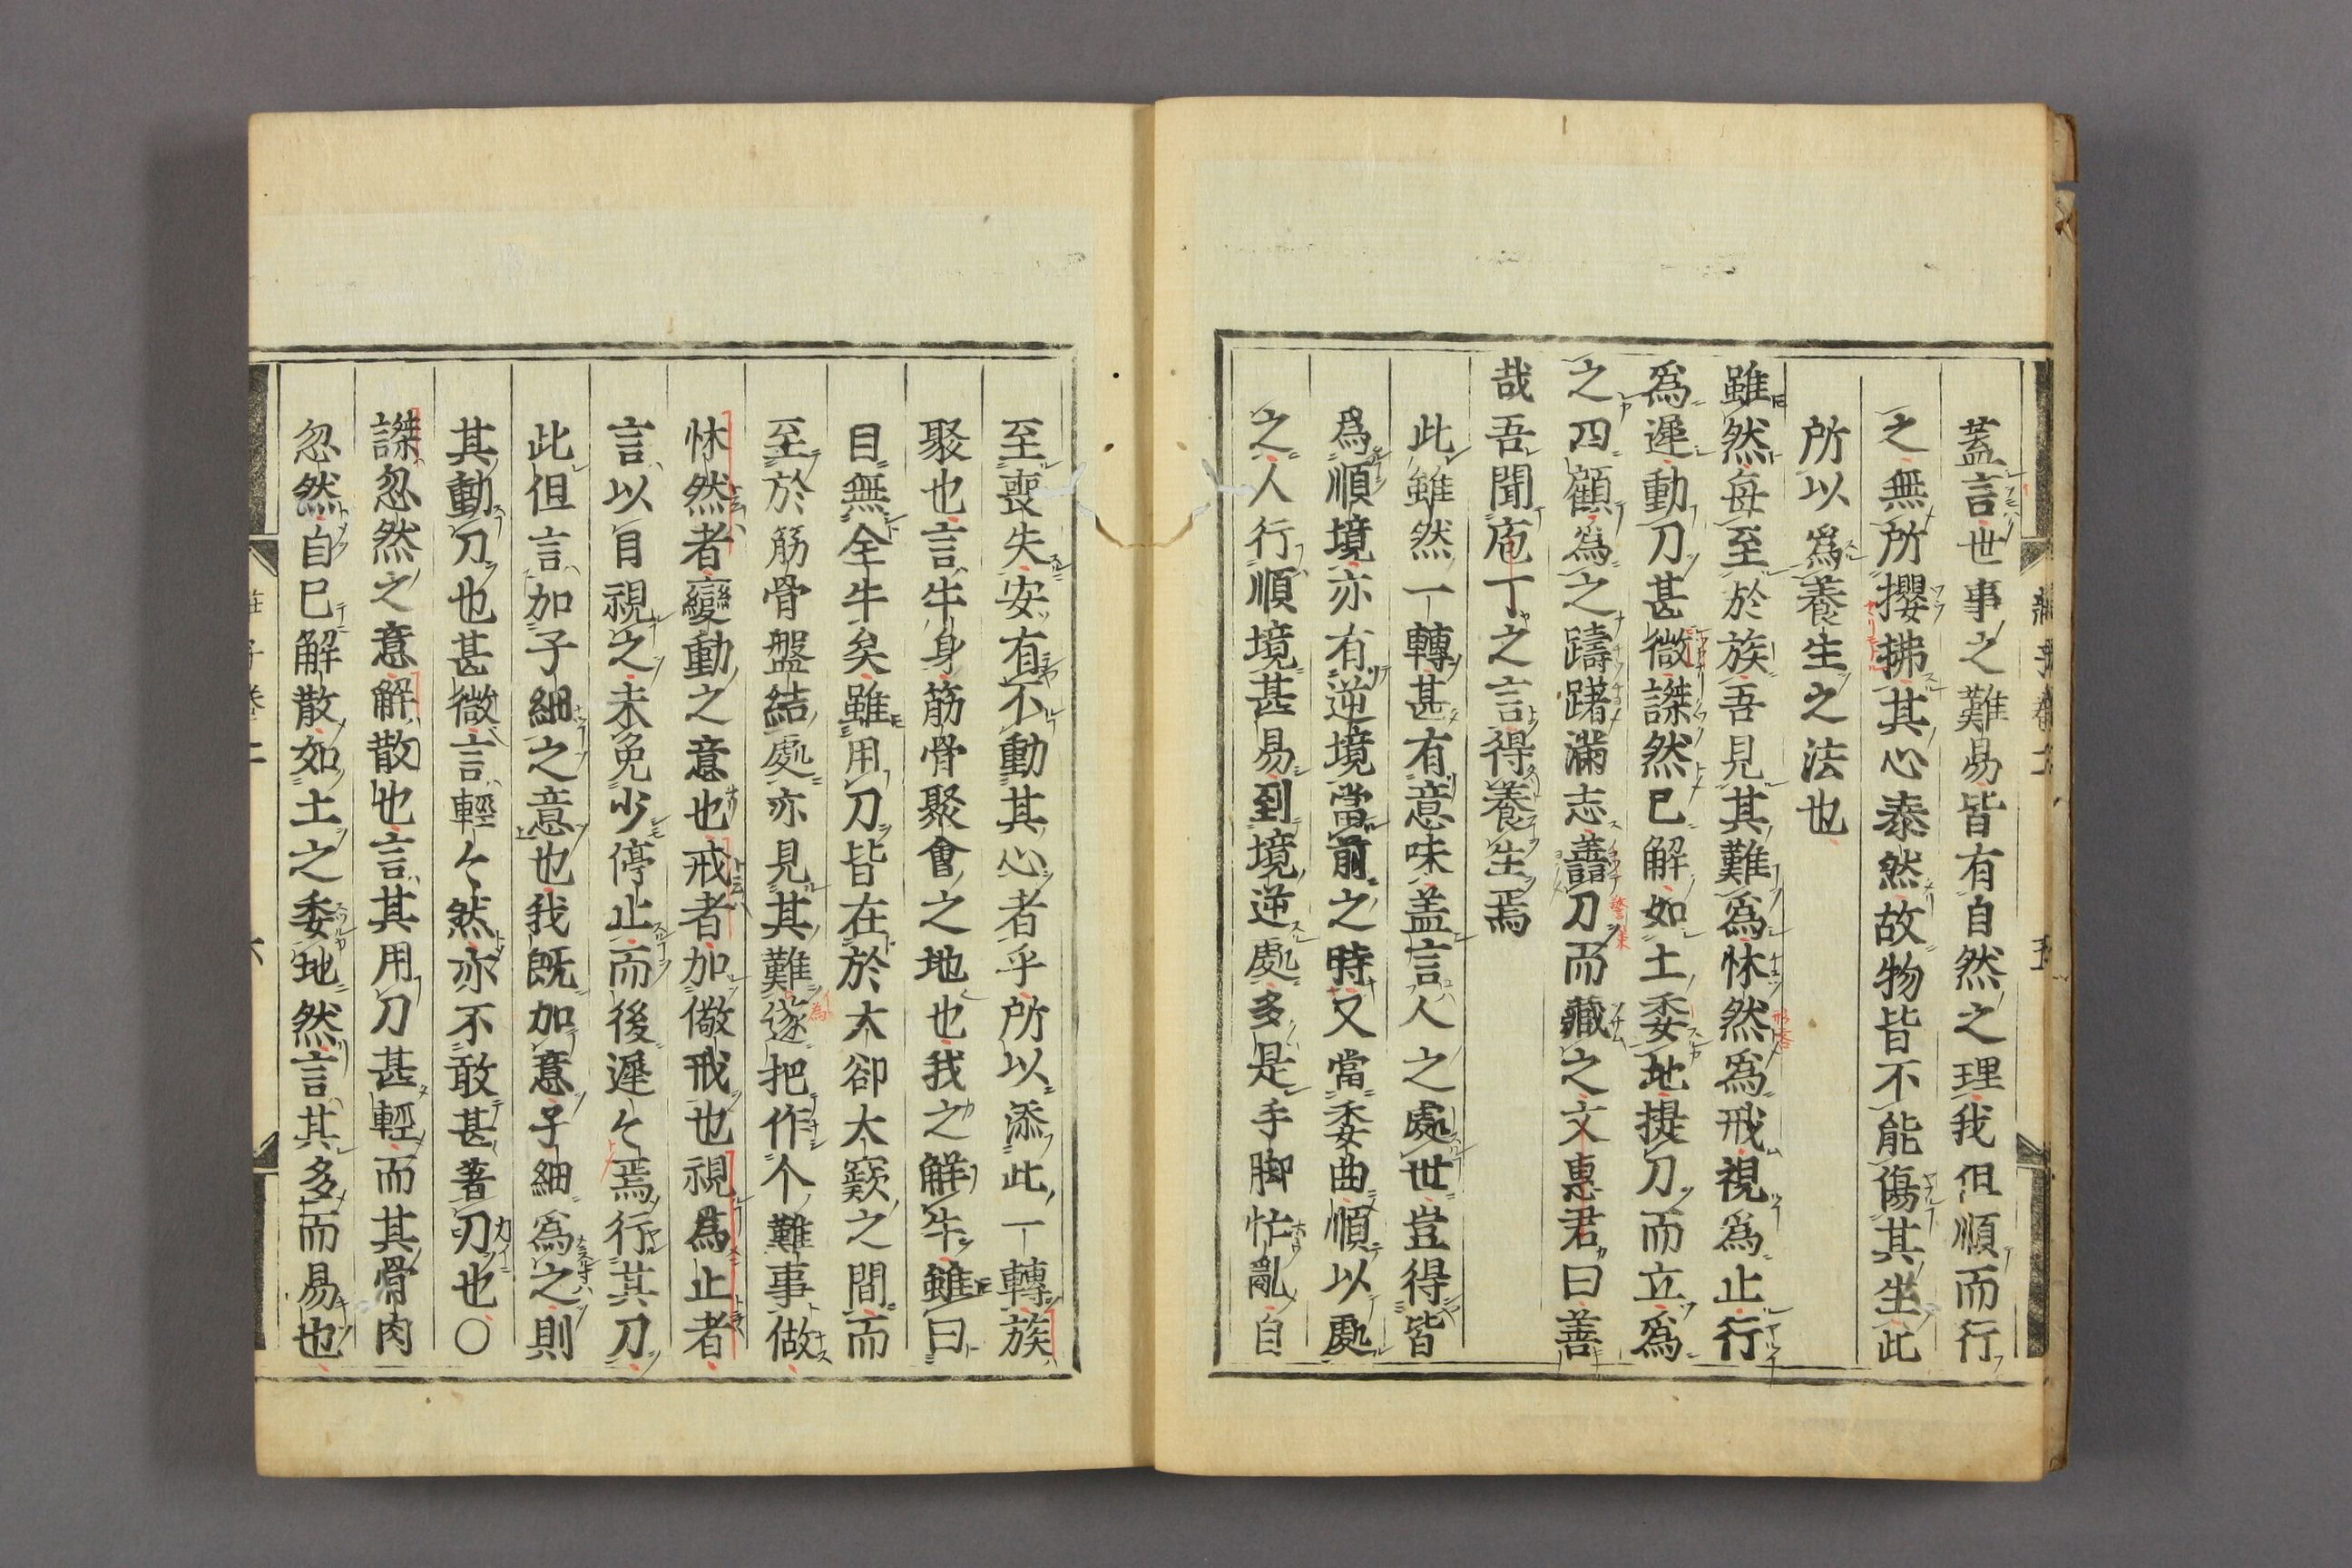 蓋言世事之難易皆有自然之理我但順而行
之無所攖拂其心泰然故物皆不能傷其生此
所以爲養生之法也
雖然每至於族吾見其難爲怵然爲戒視爲止行
爲遲動刀甚微謋然已解如土委地提刀而立爲
之四顧爲之躊躇滿志善刀而藏之文惠君曰善
哉吾聞庖丁之言得養生焉
此雖然一轉甚有意味盖言人之處世豈得皆
爲順境亦有逆境當前之時又當委曲順以處
之人行順境甚易到境逆處多是手脚忙亂自
至喪失安有不動其心者乎所以添此一轉族
聚也言牛身筋骨聚會之地也我之解牛雖曰
目無全牛矣雖用刀皆在於大卻大窾之間而
至於筋骨盤結處亦見其難遂把作个難事做
怵然者變動之意也戒者加儆戒也視爲止者
言以目視之未免少停止而後遲〻焉行其刀
此但言加子細之意也我既加意子細爲之則
其動刀也甚微言輕〻然亦不敢甚著刃也〇
謋忽然之意解散也言其用刀甚輕而其骨肉
忽然自已解散如土之委地然言其多而易也